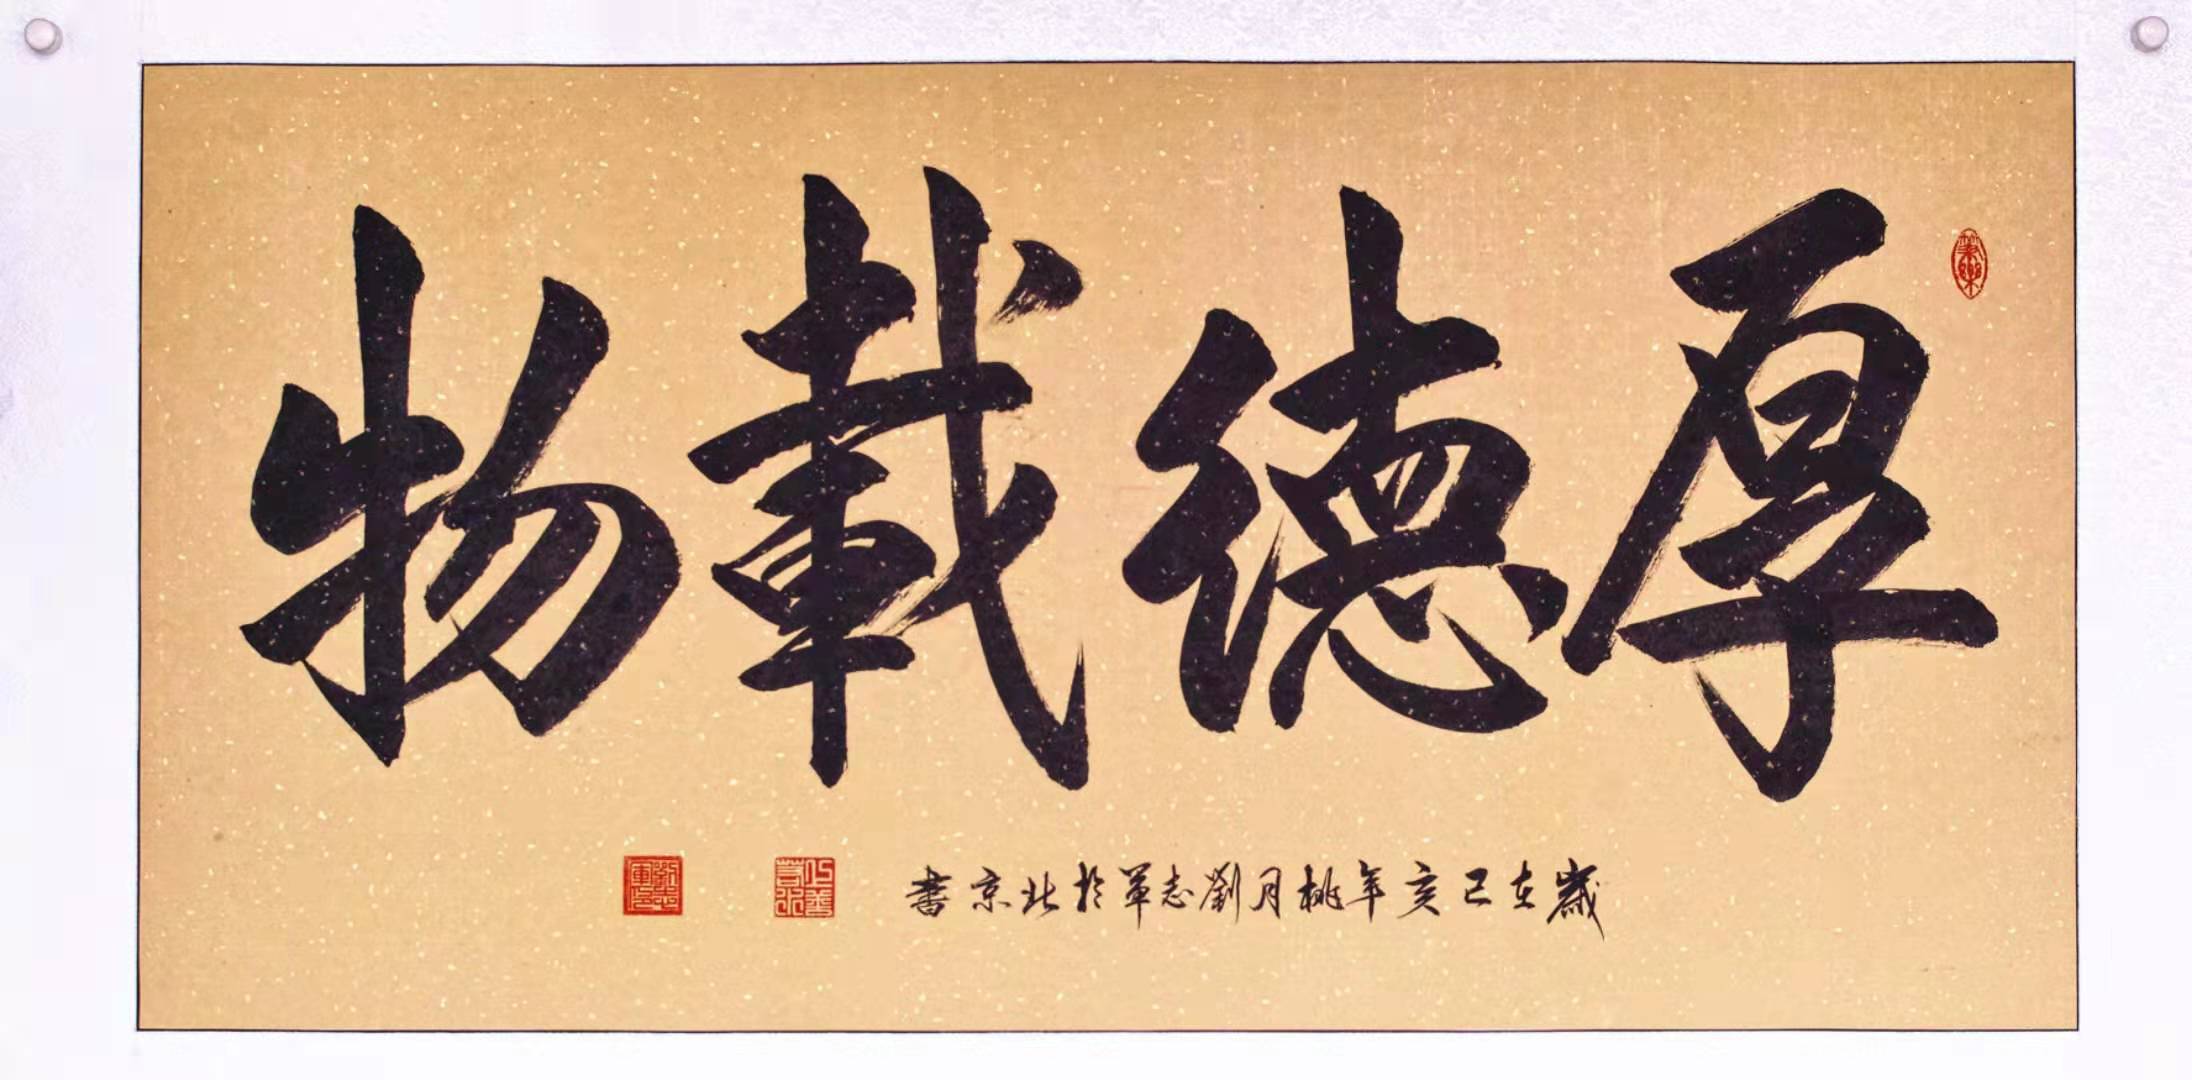 厚德載物
歲在己亥年桃月劉志軍於北京書